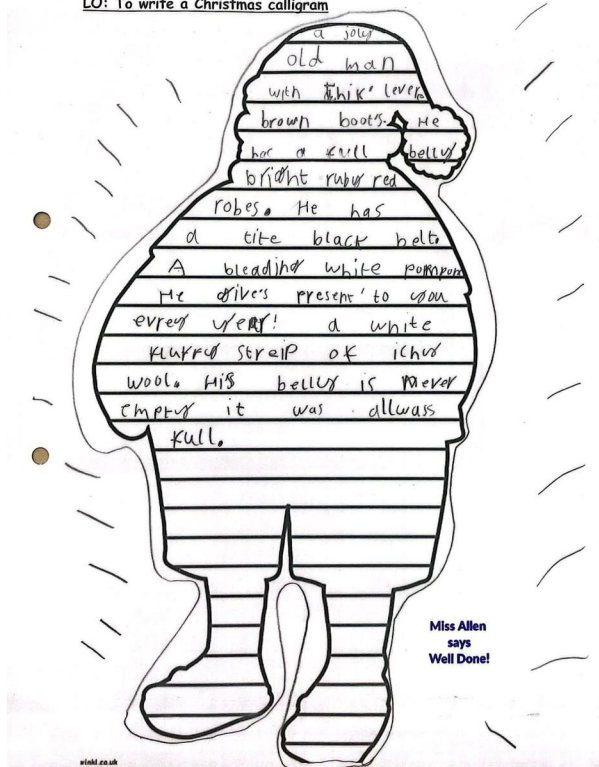 LO: To write a Christmas calligram
a joly
old man
with thik' lever
brown boot's. He
has a full belly
bright ruby red
robes. He has
a tite black belt.
A bleading white pompom
He give's present' to you
evrey year! a white
fluffy streip of ichy
wool. His belly is never
empty it was allwass
full.
Miss Allen
says
Well Done!
winkl.co.uk